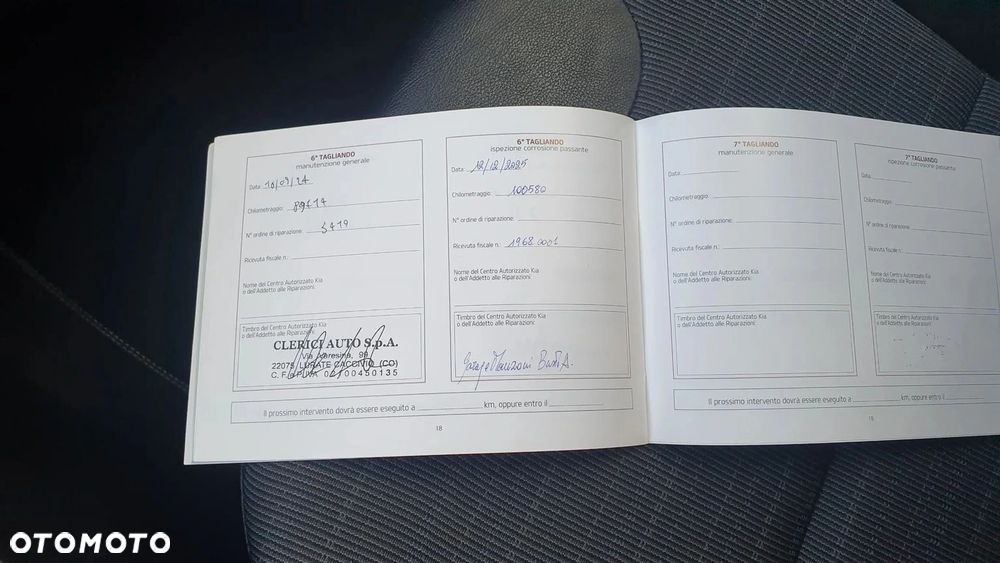 6° TAGLIANDO
manutenzione generale
Data: 10/09/24
Chilometraggio: 89614
N° ordine di riparazione: 3419
Ricevuta fiscale n.:
Nome del Centro Autorizzato Kia
o dell'Addetto alle Riparazioni:
Timbro del Centro Autorizzato Kia
o dell'Addetto alle Riparazioni:
CLERICI AUTO S.p.A.
Via Varesina, 99
22075 LURATE CACCIVIO (CO)
C. F. e P. IVA 02100450135
6° TAGLIANDO
ispezione corrosione passante
Data: 12/12/2025
Chilometraggio: 100580
N° ordine di riparazione:
Ricevuta fiscale n.: 1968.0001
Nome del Centro Autorizzato Kia
o dell'Addetto alle Riparazioni:
Timbro del Centro Autorizzato Kia
o dell'Addetto alle Riparazioni:
Garage Manzoni Busto A.
Il prossimo intervento dovrà essere eseguito a km, oppure entro il
18
7° TAGLIANDO
manutenzione generale
Data:
Chilometraggio:
N° ordine di riparazione:
Ricevuta fiscale n.:
Nome del Centro Autorizzato Kia
o dell'Addetto alle Riparazioni:
Timbro del Centro Autorizzato Kia
o dell'Addetto alle Riparazioni:
7° TAGLIANDO
ispezione corrosione passante
Data:
Chilometraggio:
N° ordine di riparazione:
Ricevuta fiscale n.:
Nome del Centro Autorizzato Kia
o dell'Addetto alle Riparazioni:
Timbro del Centro Autorizzato Kia
o dell'Addetto alle Riparazioni:
Il prossimo intervento dovrà essere eseguito a km, oppure entro il
OTOMOTO